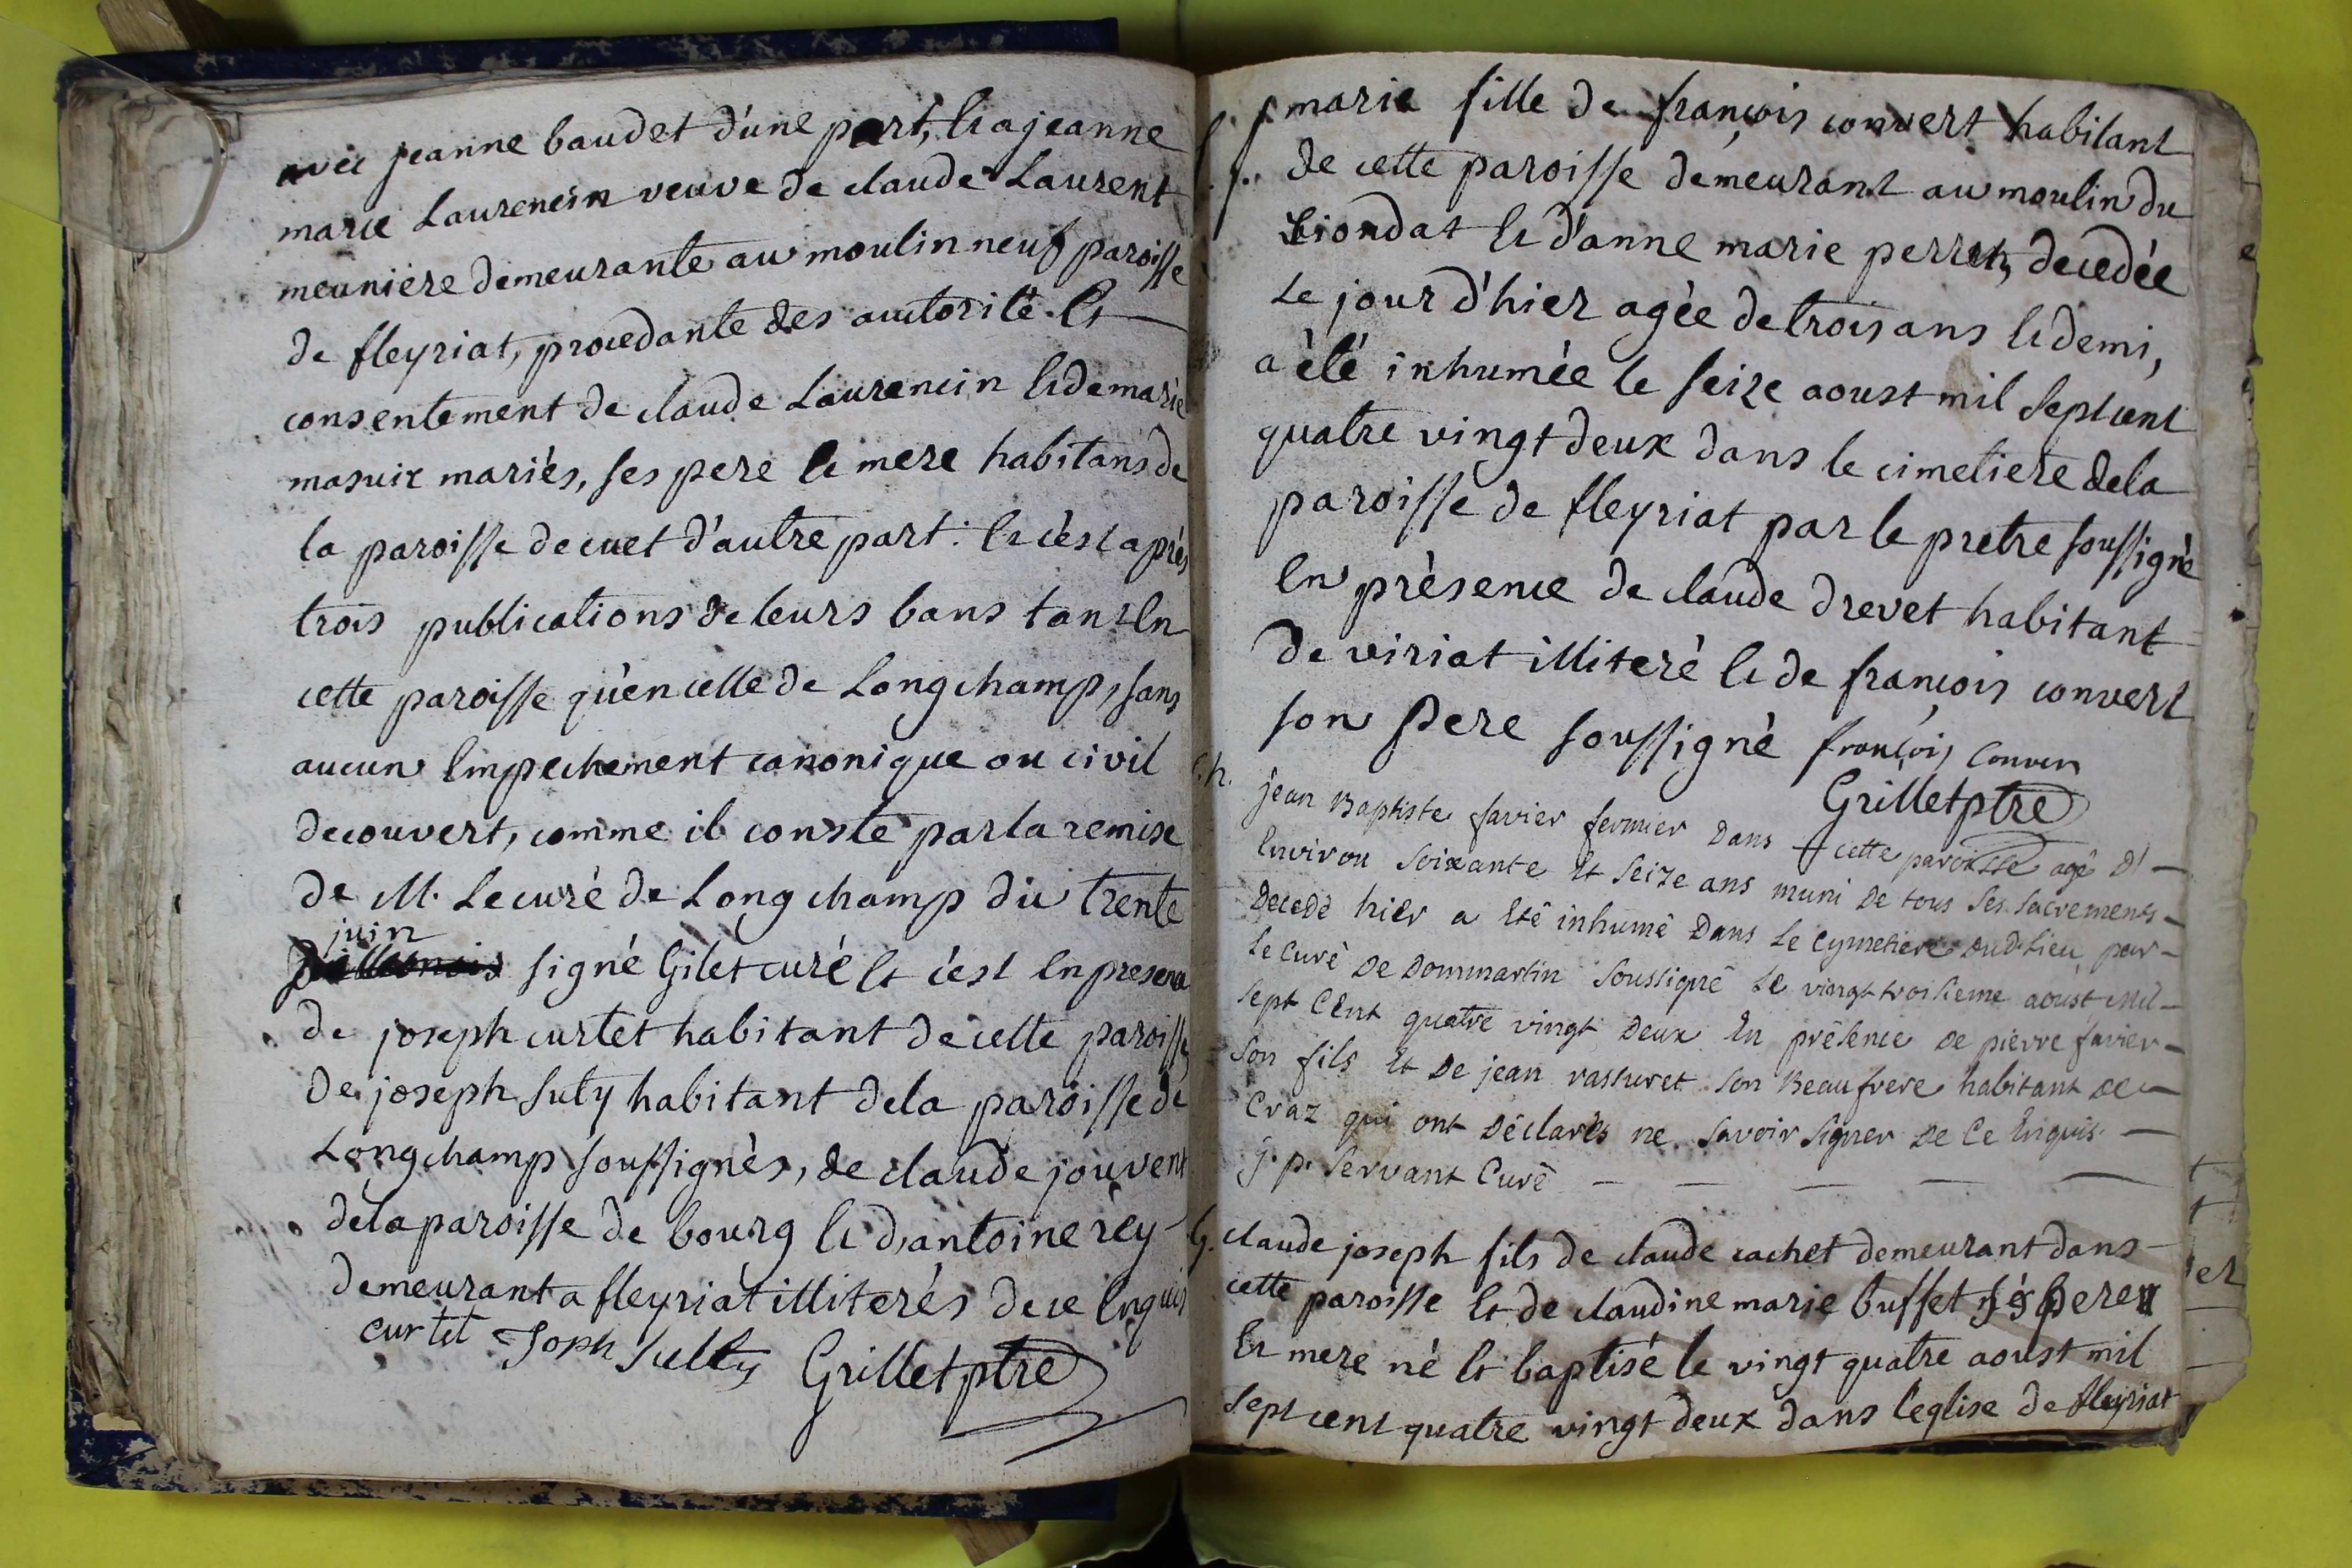 avec jeanne baudet d'une part, et a jeanne
marie Laurencin veuve de claude Laurent
meuniere demeurante au moulin neuf paroisse
de fleyriat, procedante des autorité et
consentement de claude Laurencin et de marie
masuir mariés, ses pere et mere habitans de
la paroisse de cuet d'autre part: et c'est après
trois publications de leurs bans tant en
cette paroisse qu'en celle de Longchamp, sans
aucun empechement canonique ou civil
decouvert, comme il conste par la remise
de M. Le curé de Longchamp du trente
juin
signé Gilet curé et c'est en presence
de joseph curtet habitant de cette paroisse
de joseph suly habitant de la paroisse de
Longchamp soussignés, de claude jouvent
de la paroisse de bourg et d'antoine rey
demeurant a fleyriat illiterés de ce enquis
curtet Joph Sulty Grillet ptre
marie fille de françois convert habitant
de cette paroisse demeurant au moulin du
biondat et d'anne marie perret, decedée
Le jour d'hier agée de trois ans et demi,
a été inhumée le seize aoust mil sept cent
quatre vingt deux dans le cimetiere de la
paroisse de fleyriat par le pretre soussigné
en présence de claude drevet habitant
de viriat illiteré et de françois convert
son pere soussigné françois Conver
Grillet ptre
jean Baptiste favier fermier dans cette paroisse agé d'
Environ soixante et seize ans muni de tous ses sacrements
Decedé hier a eté inhumé Dans Le Cymetiere dud. Lieu par
Le Curé De Dommartin soussigné Le vingt troisieme aoust Mil
sept Cent quatre vingt Deux En présence De pierre favier
son fils et De jean vassuret son Beaufrere habitant de
Craz qui ont Déclarés ne savoir signer De Ce Enquis.
j. p. Servant Curé
claude joseph fils de claude cachet demeurant dans
cette paroisse et de claudine marie buffet ses pere
et mere né et baptisé le vingt quatre aoust mil
sept cent quatre vingt deux dans l'eglise de fleyriat